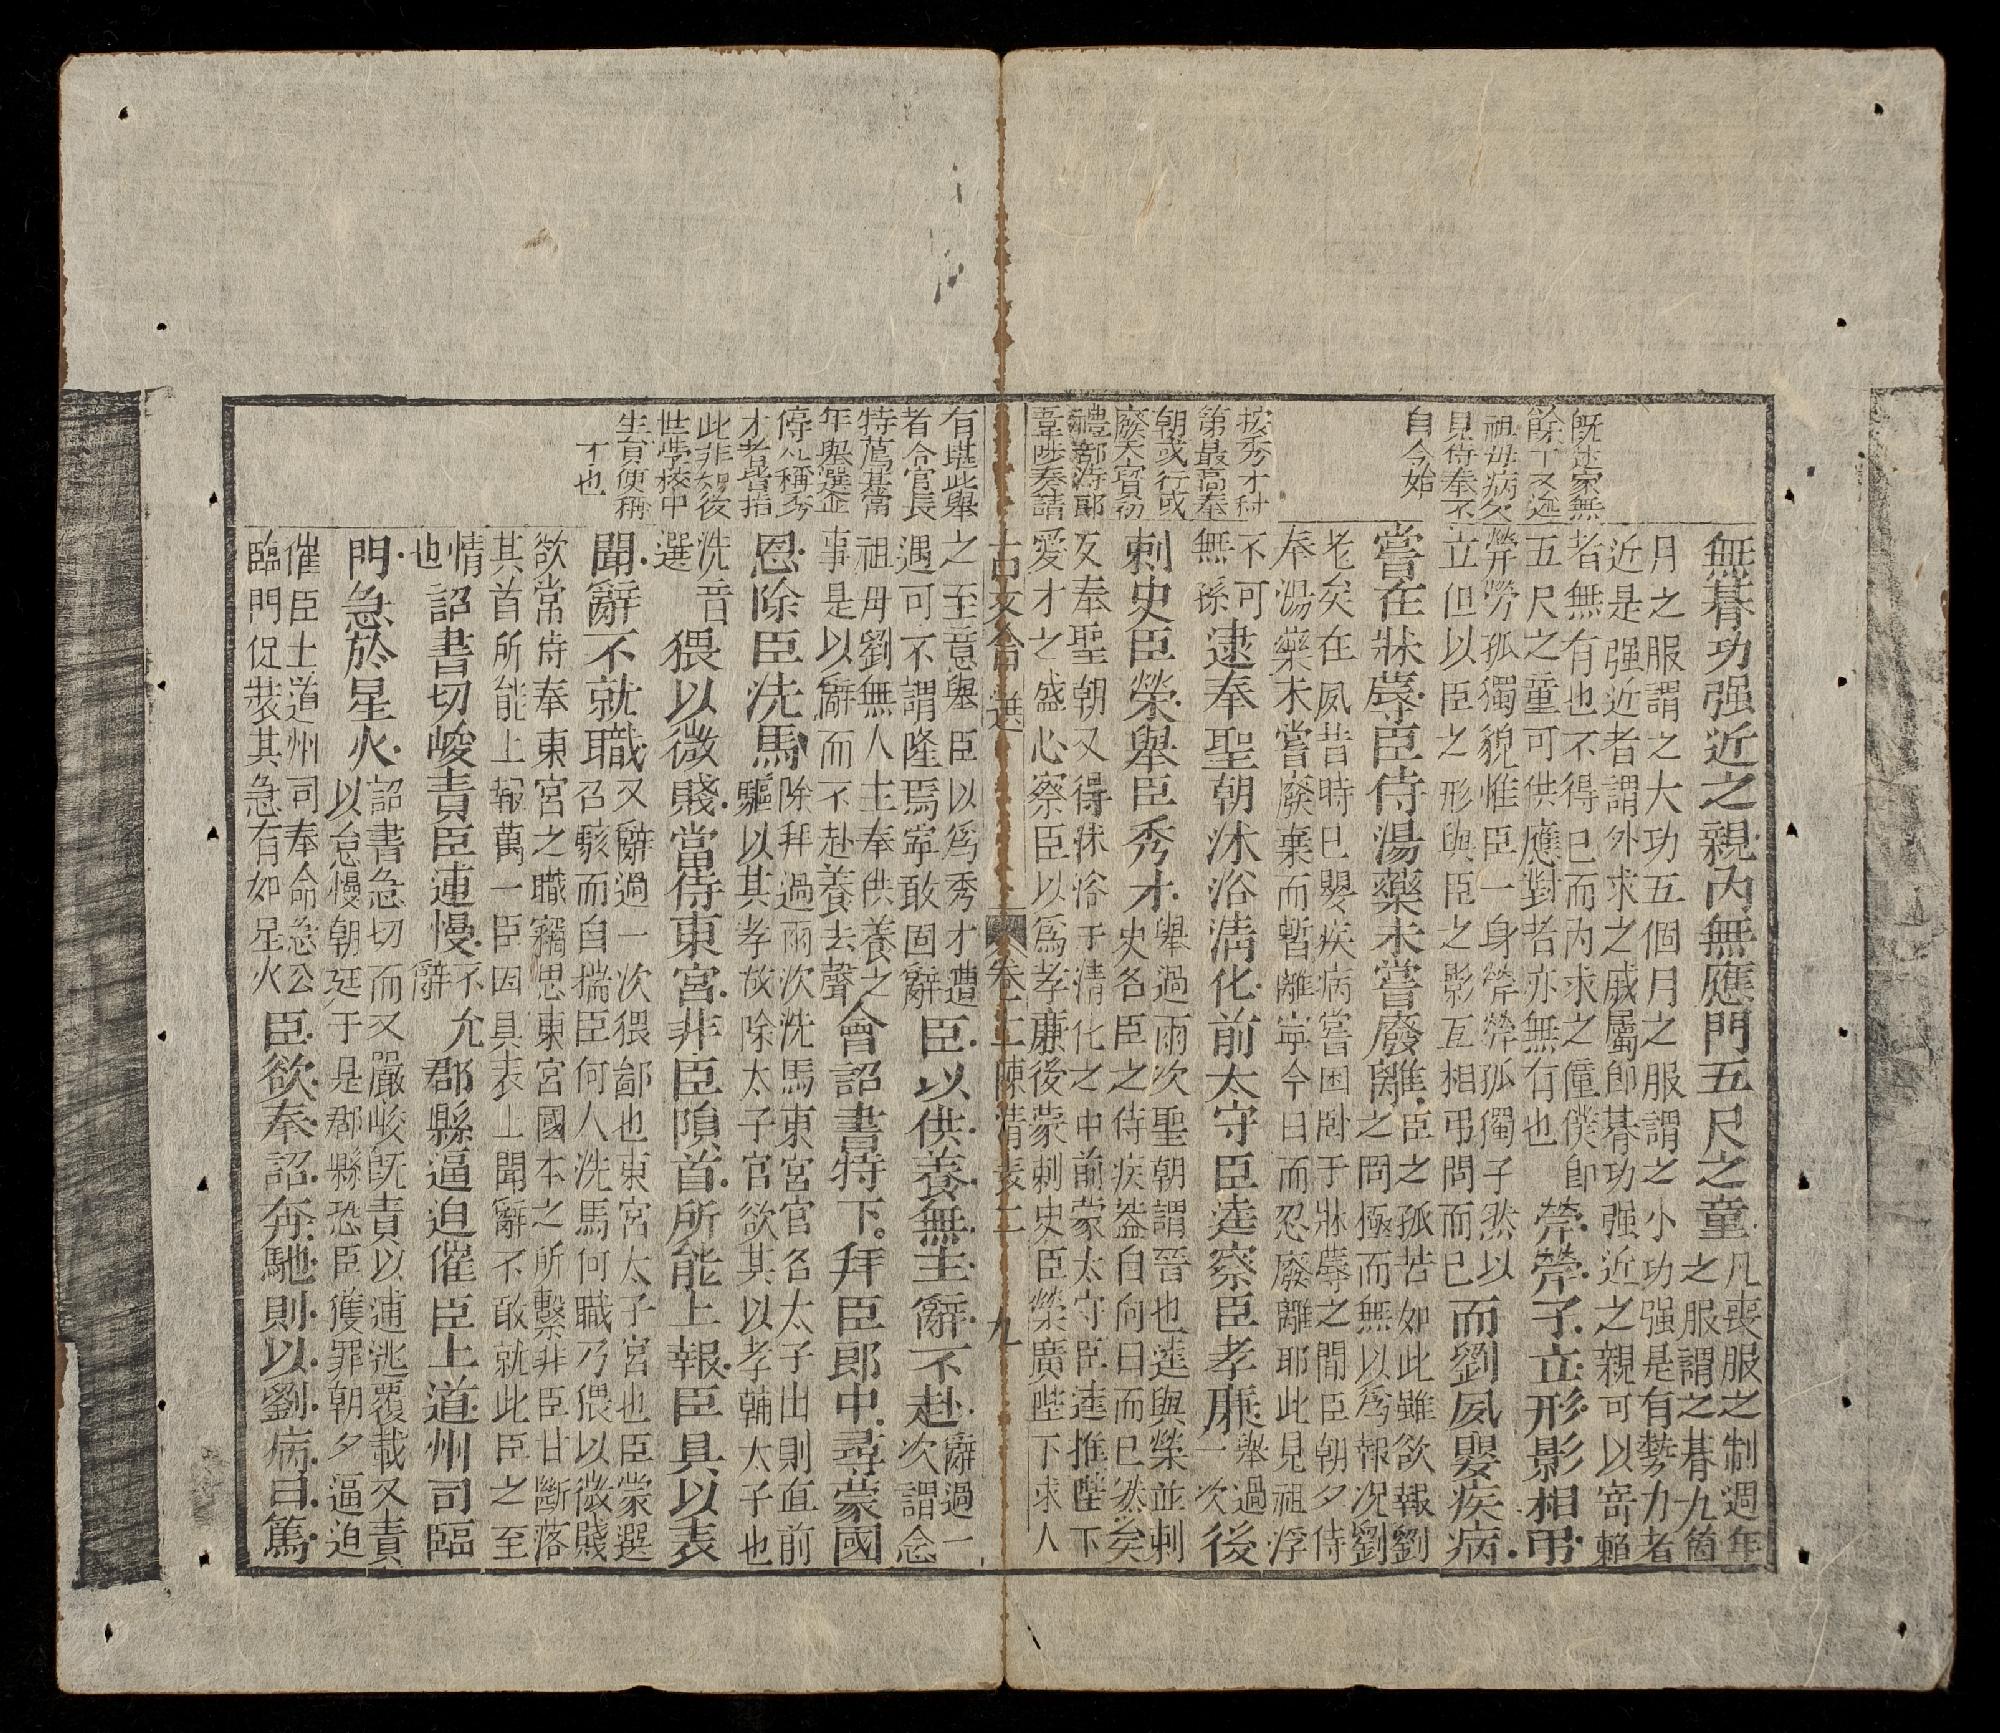 既述家無
餘丁又延
祖母病久
見侍奉不
自今始
按秀才科
第最高奉
朝或行或
廢天寳初
禮部侍郎
韋陟奏請
有堪此舉
者令官長
特薦其常
年與選並
停凡稱秀
才者皆指
此非如後
世學校中
生員便稱
才也
無朞功强近之親内無應門五尺之童
凡喪服之制週年
之服謂之朞九箇
月之服謂之大功五個月之服謂之小功强是有勢力者
近是强近者謂外求之戚屬卽朞功强近之親可以寄賴
者無有也不得已而内求之僮僕卽
五尺之童可供應對者亦無有也
煢煢孑立形影相弔
煢勞孤獨貌惟臣一身煢煢孤獨孑然以
立但以臣之形與臣之影互相弔問而已
而劉夙嬰疾病
嘗在牀蓐臣侍湯藥未嘗廢離
臣之孤苦如此雖欲報劉
之罔極而無以爲報况劉
老矣在夙昔時已嬰疾病嘗困卧于牀蓐之間臣朝夕侍
奉湯藥未嘗廢棄而暫離寧今日而忍廢離耶此見祖浮
不可
無孫
逮奉聖朝沐浴清化前太守臣逵察臣孝廉
舉過
一次
後
刺史臣榮舉臣秀才
舉過兩次聖朝謂晉也逵與榮並刺
史各臣之侍疾葢自向日而已然矣
及奉聖朝又得沐浴于清化之中前蒙太守臣逵推陞下
愛才之盛心察臣以爲孝廉後蒙刺史臣榮廣陛下求人
古文 選 卷二 陳情表二 九
之至意舉臣以爲秀才遭
遇可不謂隆焉寧敢固辭
臣以供養無主辭不赴
辭過一
次謂念
祖母劉無人主奉供養之
事是以辭而不赴養去聲
會詔書特下拜臣郎中尋蒙國
恩除臣洗馬
除拜過兩次洗馬東宮官名太子出則直前
驅以其孝故除太子官欲其以孝輔太子也
洗音
選
猥以微賤當侍東宮非臣隕首所能上報臣具以表
聞辭不就職
又辭過一次猥鄙也東宮太子宮也臣蒙選
召駭而自揣臣何人洗馬何職乃猥以微賤
欲常侍奉東宮之職竊思東宮國本之所繫非臣甘斷落
其首所能上報萬一臣因具表上聞辭不敢就此臣之至
情
也
詔書切峻責臣逋慢
不允
辭
郡縣逼迫催臣上道州司臨
門急於星火
詔書急切而又嚴峻既責以逋逃覆載又責
以怠慢朝廷于是郡縣恐臣獲罪朝夕逼迫
催臣上道州司奉命急公
臨門促裝其急有如星火
臣欲奉詔奔馳則以劉病日篤